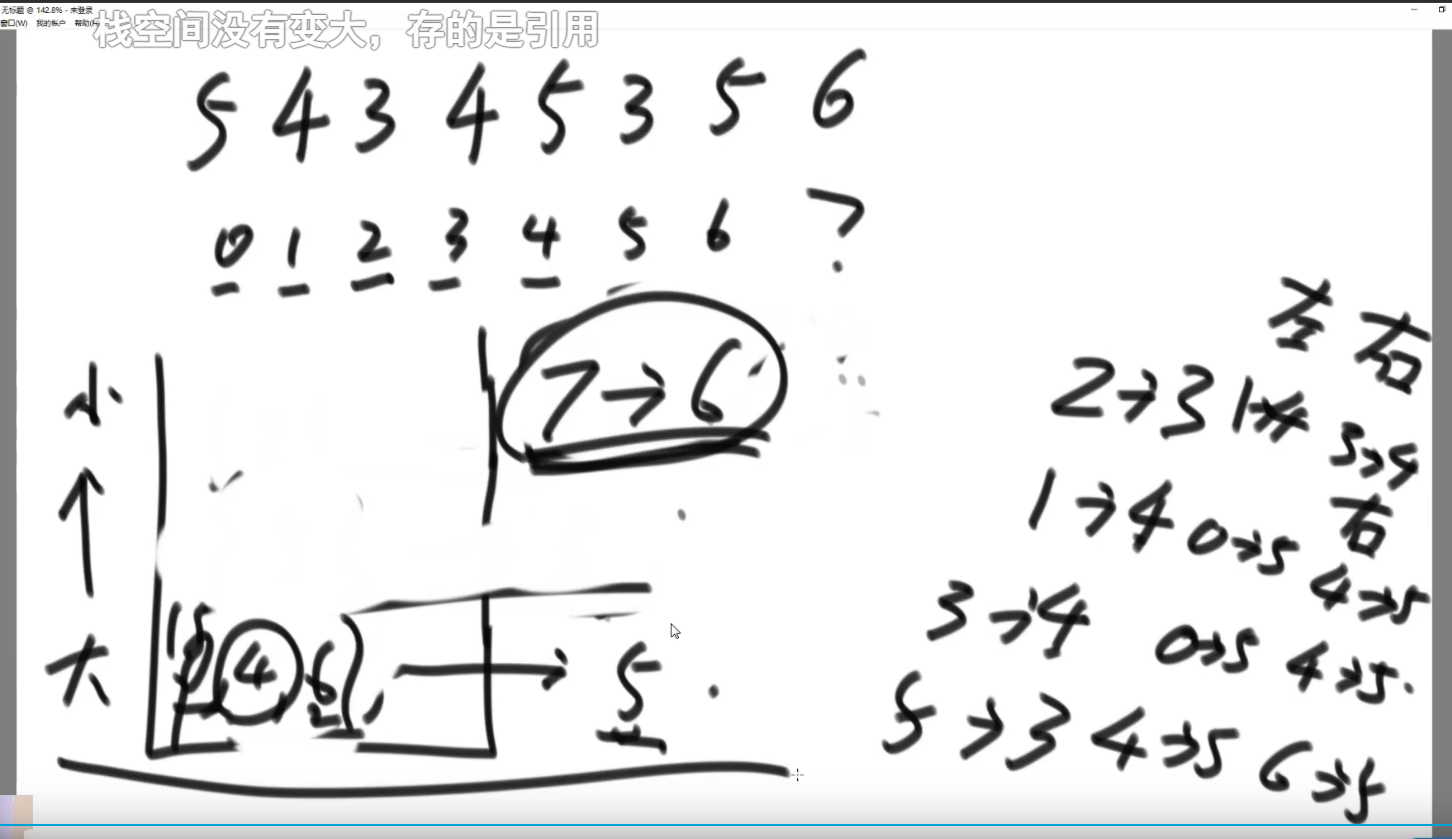 无标题 @ 142.8% - 未登录
窗口(W) 我的帐户 帮助(H)
栈空间没有变大，存的是引用
5 4 3 4 5 3 5 6
0 1 2 3 4 5 6 7
左 右
小 7→6
2→3 1→4 3→4
右
1→4 0→5 4→5
3→4 0→5 4→5
大 4 6 → 5
5→3 4→5 6→5